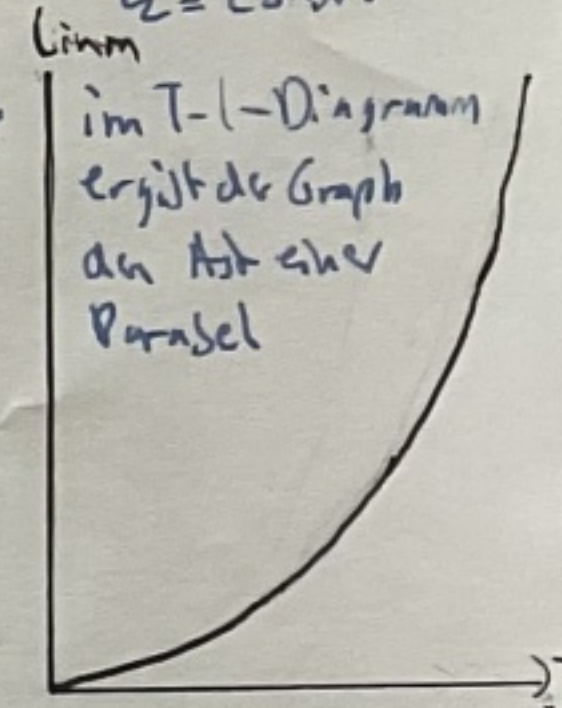 l in m
im T-l-Diagramm
ergibt der Graph
den Ast einer
Parabel